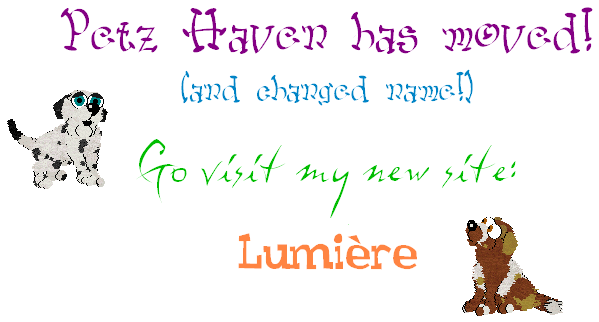 Petz Haven has moved!
(and changed name!)
Go visit my new site:
Lumière